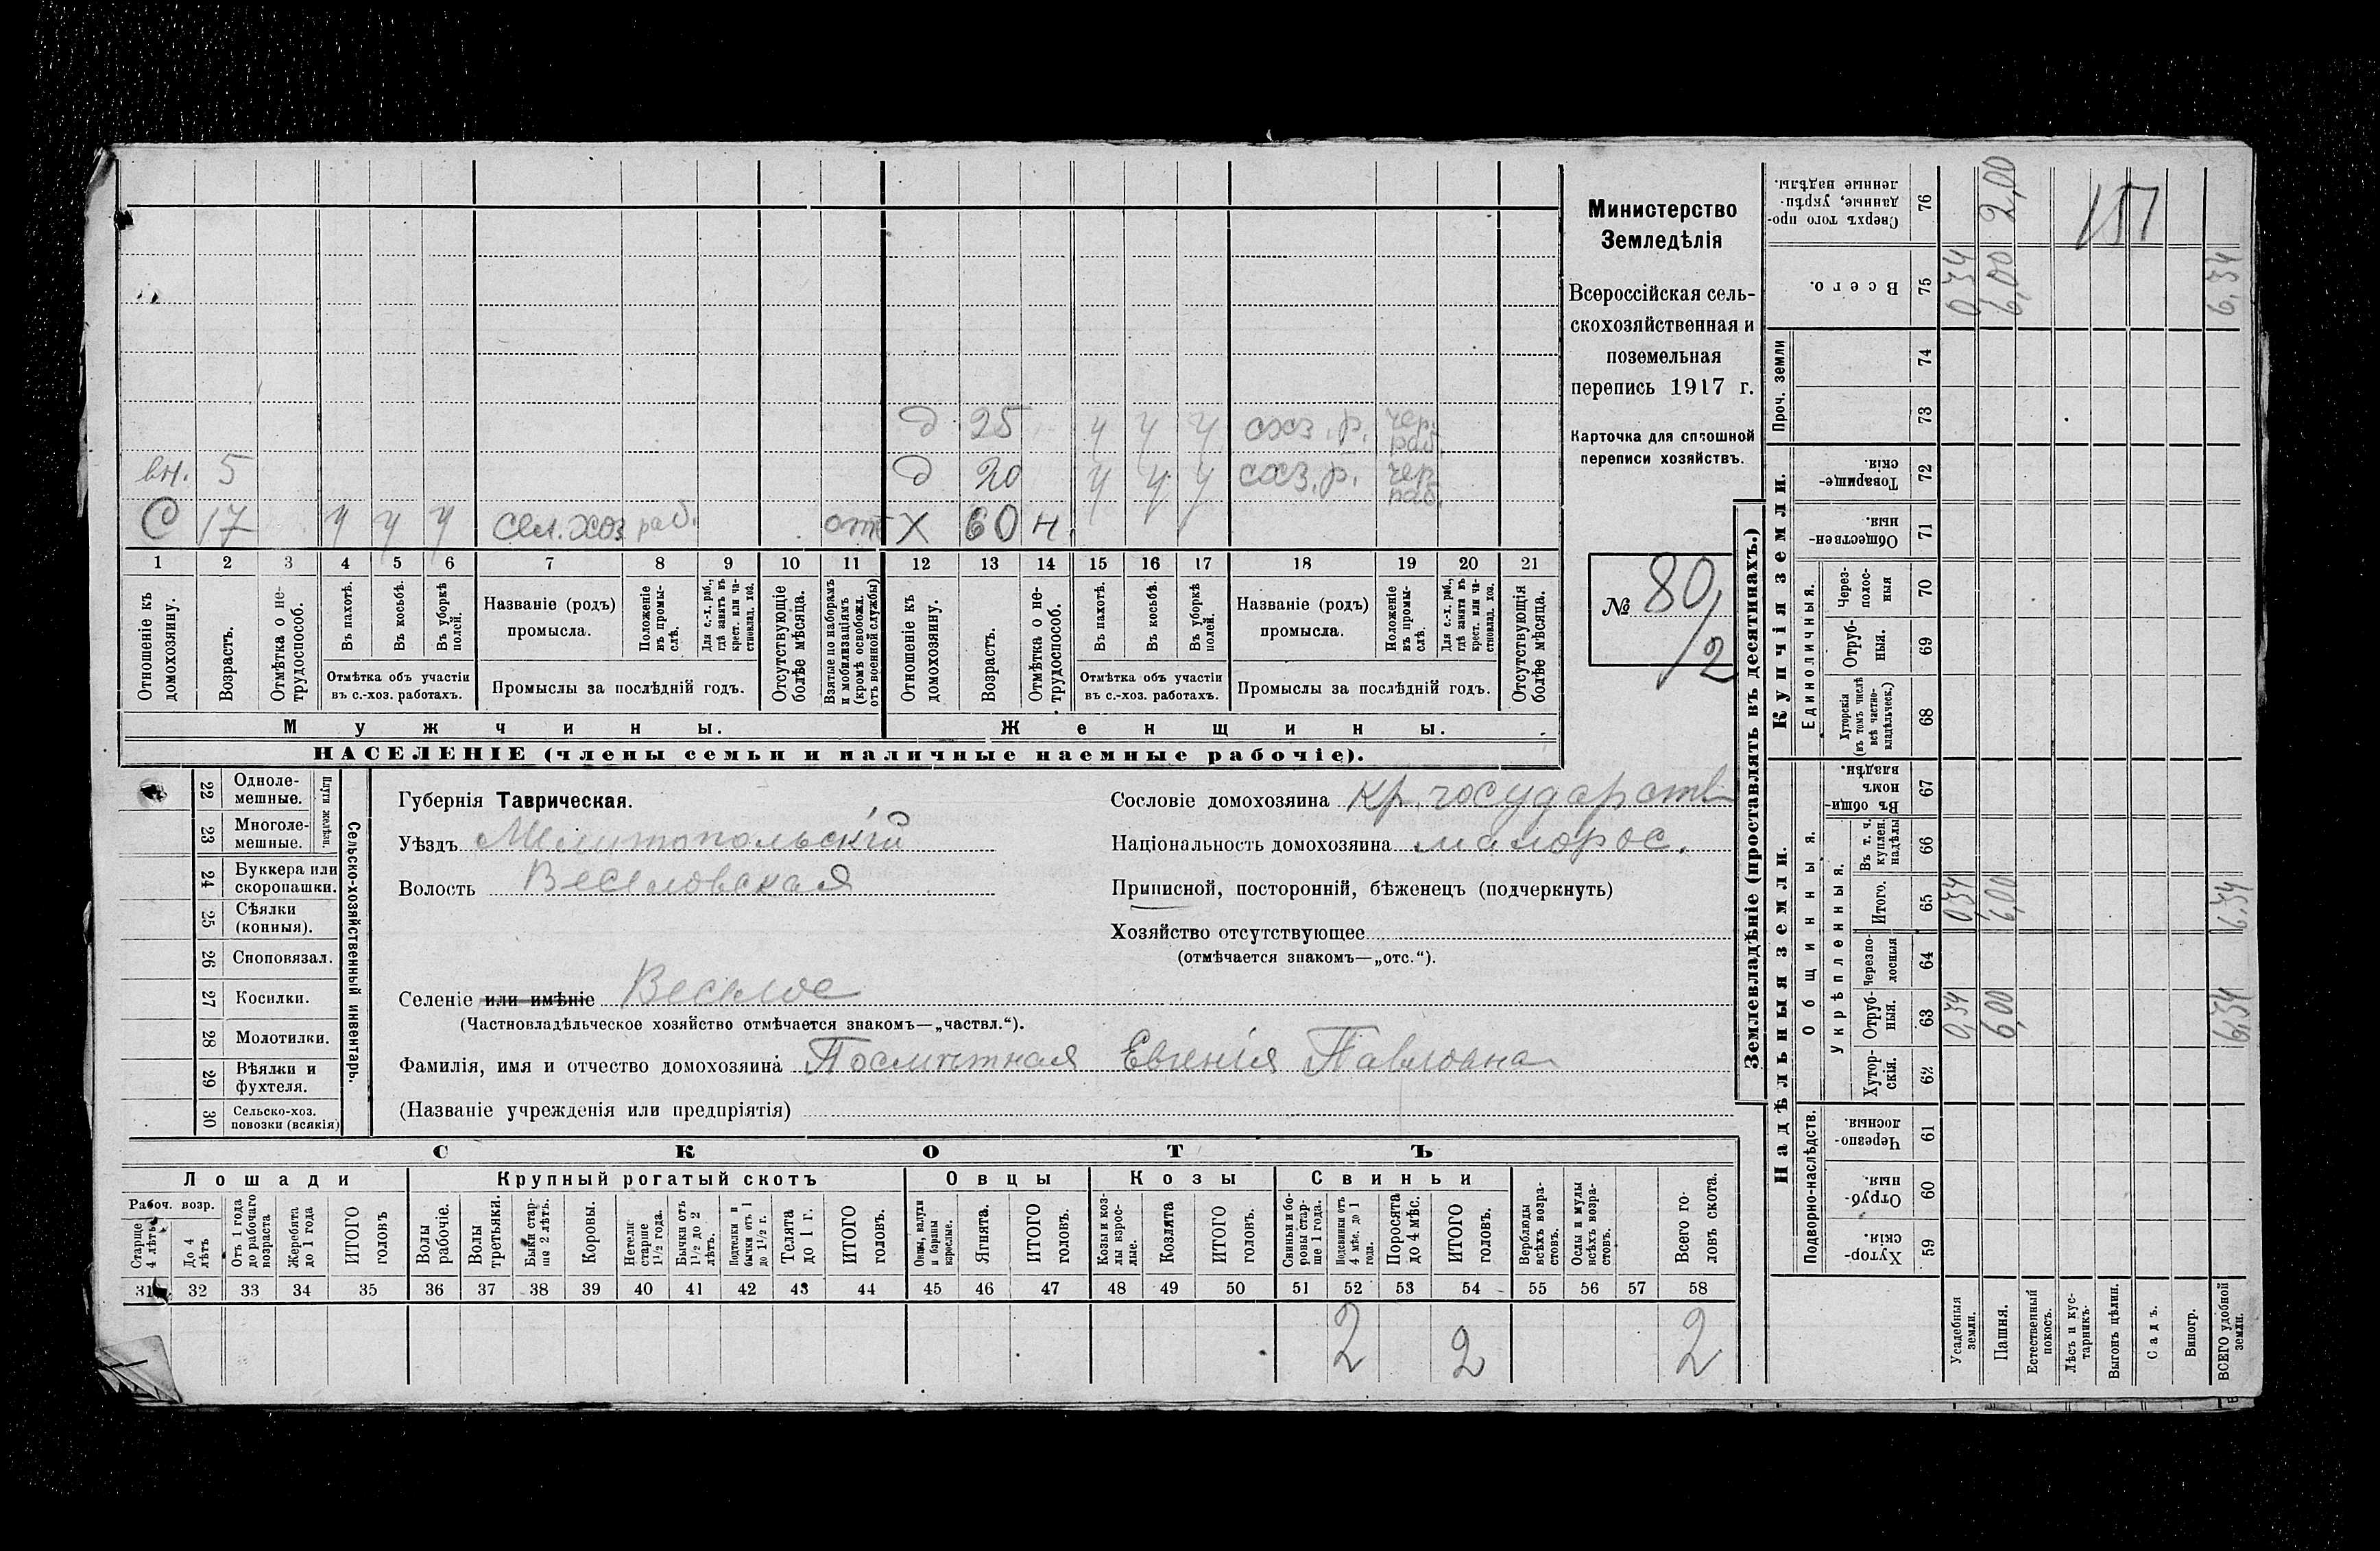 Министерство
Земледѣлія
Всероссійская сель-
скохозяйственная и
поземельная
перепись 1917 г.
Карточка для сплошной
переписи хозяйствъ.
№ 80/2
д 25 у у у схз. р. чер. раб.
вн. 5 д 20 у у у схз. р. чер. раб.
С 17 у у у сел. хоз раб. отс Х 60 н.
1 2 3 4 5 6 7 8 9 10 11 12 13 14 15 16 17 18 19 20 21
Отношеніе къ домохозяину.
Возрастъ.
Отмѣтка о не-трудоспособ.
Въ пахотѣ.
Въ косьбѣ.
Въ уборкѣ полей.
Отмѣтка объ участіи въ с.-хоз. работахъ.
Названіе (родъ) промысла.
Положеніе въ промы-слѣ.
Для с.-х. раб., гдѣ занятъ въ крест. или ча-стновлад. хоз.
Промыслы за послѣдній годъ.
Отсутствующіе болѣе мѣсяца.
Взятые по наборамъ и мобилизаціямъ (кромѣ освобожд. отъ военной службы)
Отношеніе къ домохозяину.
Возрастъ.
Отмѣтка о не-трудоспособ.
Въ пахотѣ.
Въ косьбѣ.
Въ уборкѣ полей.
Отмѣтка объ участіи въ с.-хоз. работахъ.
Названіе (родъ) промысла.
Положеніе въ промы-слѣ.
Для с.-х. раб., гдѣ занята въ крест. или ча-стновлад. хоз.
Промыслы за послѣдній годъ.
Отсутствующія болѣе мѣсяца.
Мужчины. Женщины.
НАСЕЛЕНІЕ (члены семьи и наличные наемные рабочіе).
Сельско-хозяйственный инвентарь.
Плуги желѣзн.
22 Одноле-мешные.
23 Многоле-мешные.
24 Буккера или скоропашки.
25 Сѣялки (конныя).
26 Сноповязал.
27 Косилки.
28 Молотилки.
29 Вѣялки и фухтеля.
30 Сельско-хоз. повозки (всякія)
Губернія Таврическая.
Уѣздъ Мелитопольскій
Волость Веселовская
Селеніе или имѣніе Веселое
(Частновладѣльческое хозяйство отмѣчается знакомъ—„частвл.“).
Фамилія, имя и отчество домохозяина Евгенія Павловна
(Названіе учрежденія или предпріятія)
Сословіе домохозяина кр. государств
Національность домохозяина малорос.
Приписной, посторонній, бѣженецъ (подчеркнуть)
Хозяйство отсутствующее
(отмѣчается знакомъ—„отс.“).
СКОТЪ
Лошади Крупный рогатый скотъ Овцы Козы Свиньи
Рабоч. возр.
Старше 4 лѣтъ
До 4 лѣтъ
Отъ 1 года до рабочаго возраста
Жеребята до 1 года
ИТОГО головъ
Волы рабочіе.
Волы третьяки.
Быки стар-ше 2 лѣтъ.
Коровы.
Нетели старше 1½ года.
Бычки отъ 1½ до 2 лѣтъ.
Подтелки и бычки отъ 1 до 1½ г.
Телята до 1 г.
ИТОГО головъ.
Овцы, валухи и бараны взрослые.
Ягнята.
ИТОГО головъ.
Козы и коз-лы взрос-лые.
Козлята
ИТОГО головъ.
Свиньи и бо-ровы стар-ше 1 года.
Подсвинки отъ 4 мѣс. до 1 года.
Поросята до 4 мѣс.
ИТОГО головъ.
Верблюды всѣхъ возра-стовъ.
Ослы и мулы всѣхъ возра-стовъ.
Всего го-ловъ скота.
31 32 33 34 35 36 37 38 39 40 41 42 43 44 45 46 47 48 49 50 51 52 53 54 55 56 57 58
2 2 2
Землевладѣніе (проставлять въ десятинахъ.)
Надѣльныя земли. Купчія земли. Проч. земли
Подворно-наслѣдств.
Общинныя.
Укрѣпленныя.
Единоличныя.
Хутор-скія. 59
Отруб-ныя. 60
Черезпо-лосныя. 61
Хутор-скія. 62
Отруб-ныя. 63 0,34 6,00 6,34
Черезпо-лосныя 64
Итого. 65 0,34 6,00 6,34
Въ т. ч. куплен. надѣлы 66
Въ общин-номъ владѣн. 67
Хуторскія (въ томъ числѣ всѣ частно-владѣльческ.) 68
Отруб-ныя. 69
Через-полос-ныя 70
Обществен-ныя. 71
Товарище-скія. 72
73
74
Всего. 75 0,34 6,00 6,34
Сверхъ того про-данные, укрѣп-ленные надѣлы. 76 2,00
151
Усадебныя земли.
Пашня.
Естественный покосъ.
Лѣсъ и кус-тарникъ.
Выгонъ цѣлин.
Садъ.
Виногр.
ВСЕГО удобной земли.